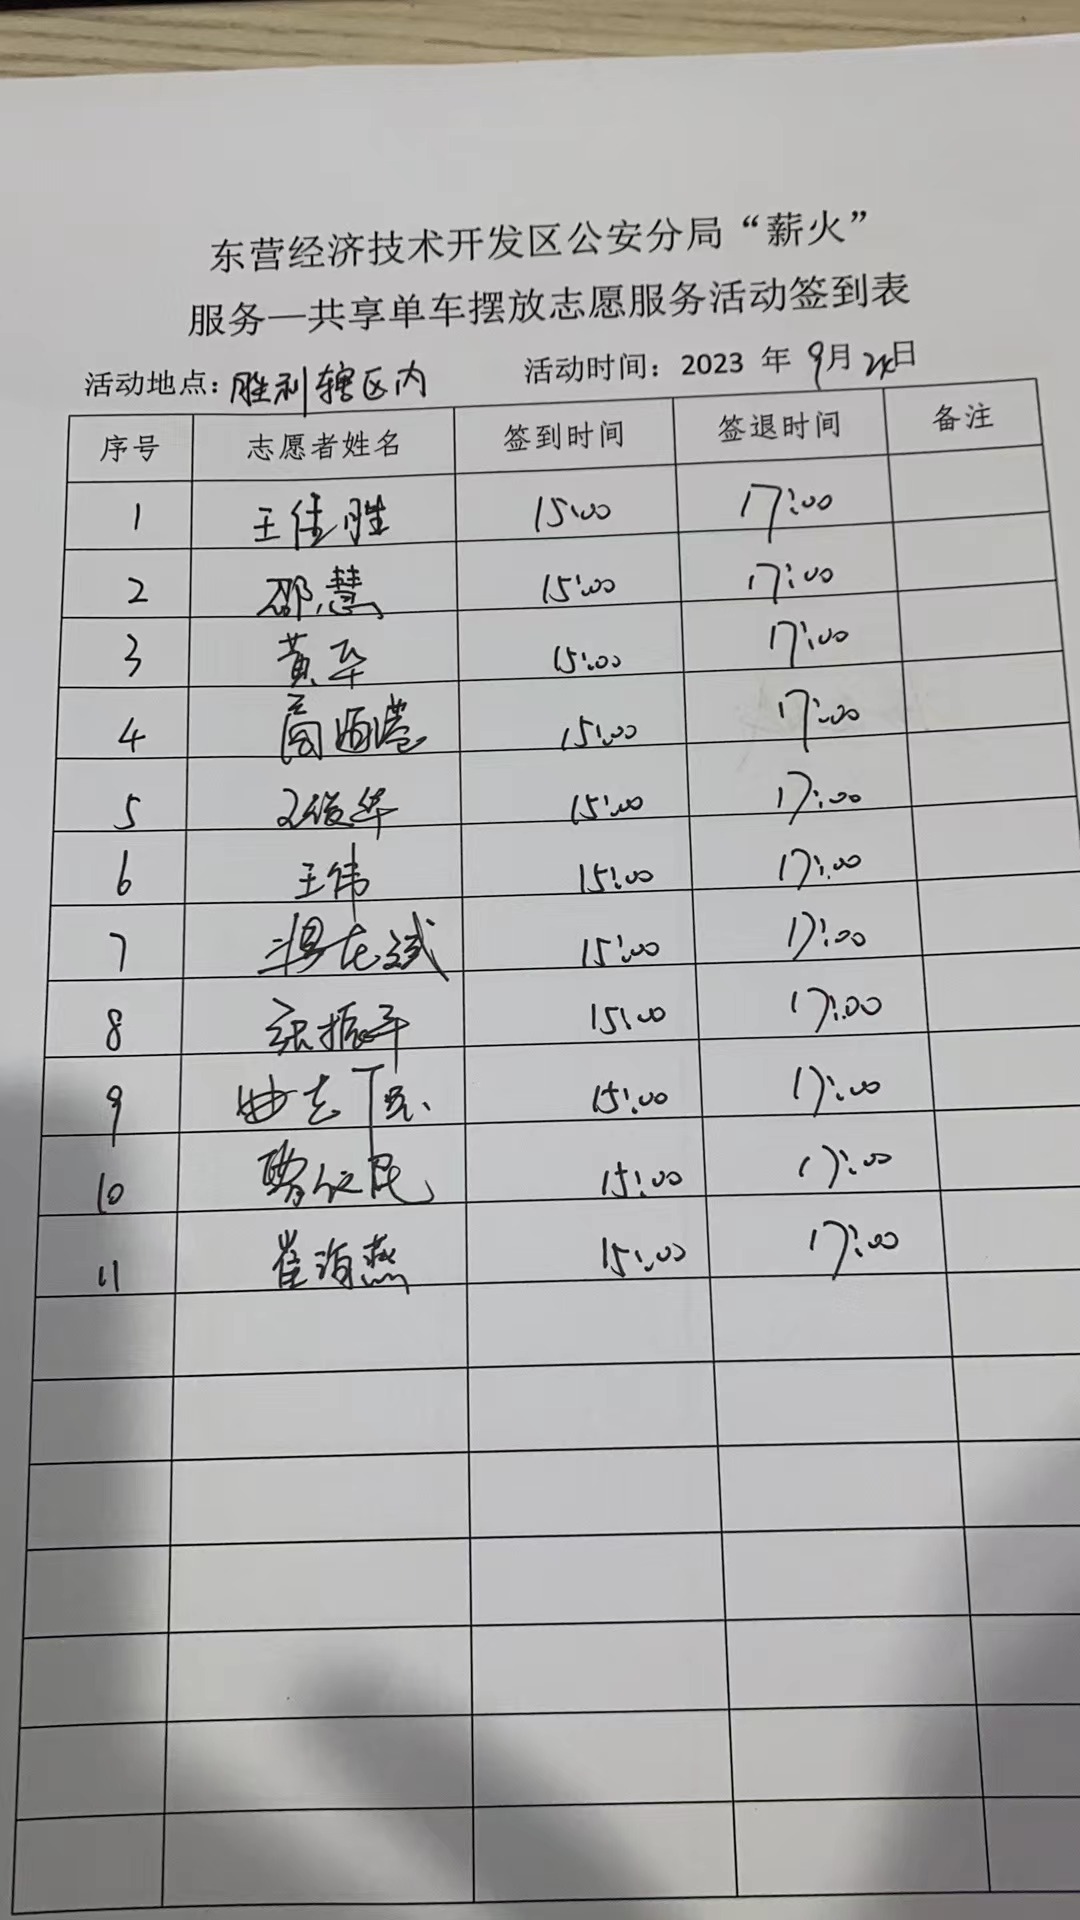 东营经济技术开发区公安分局“薪火”
服务—共享单车摆放志愿服务活动签到表
活动地点：胜利辖区内 活动时间：2023 年 9月 日
序号 志愿者姓名 签到时间 签退时间 备注
1 王佳胜 15:00 17:00
2 邵慧 15:00 17:00
3 黄 15:00 17:00
4 15:00 17:00
5 15:00 17:00
6 王伟 15:00 17:00
7 15:00 17:00
8 张振平 15:00 17:00
9 曲志 15:00 17:00
10 民 15:00 17:00
11 崔海燕 15:00 17:00